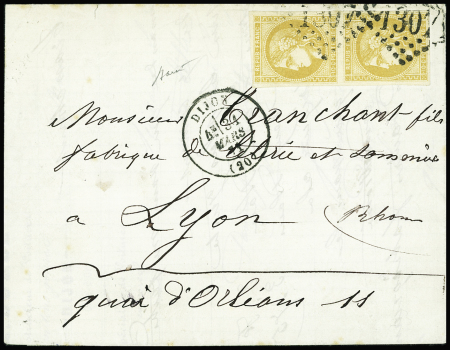 1307 1307
DIJON
4E 31 MARS 71
(20)
Monsieur Franchant fils
fabrique de et
a Lyon Rhone
quai d'Orléans 11